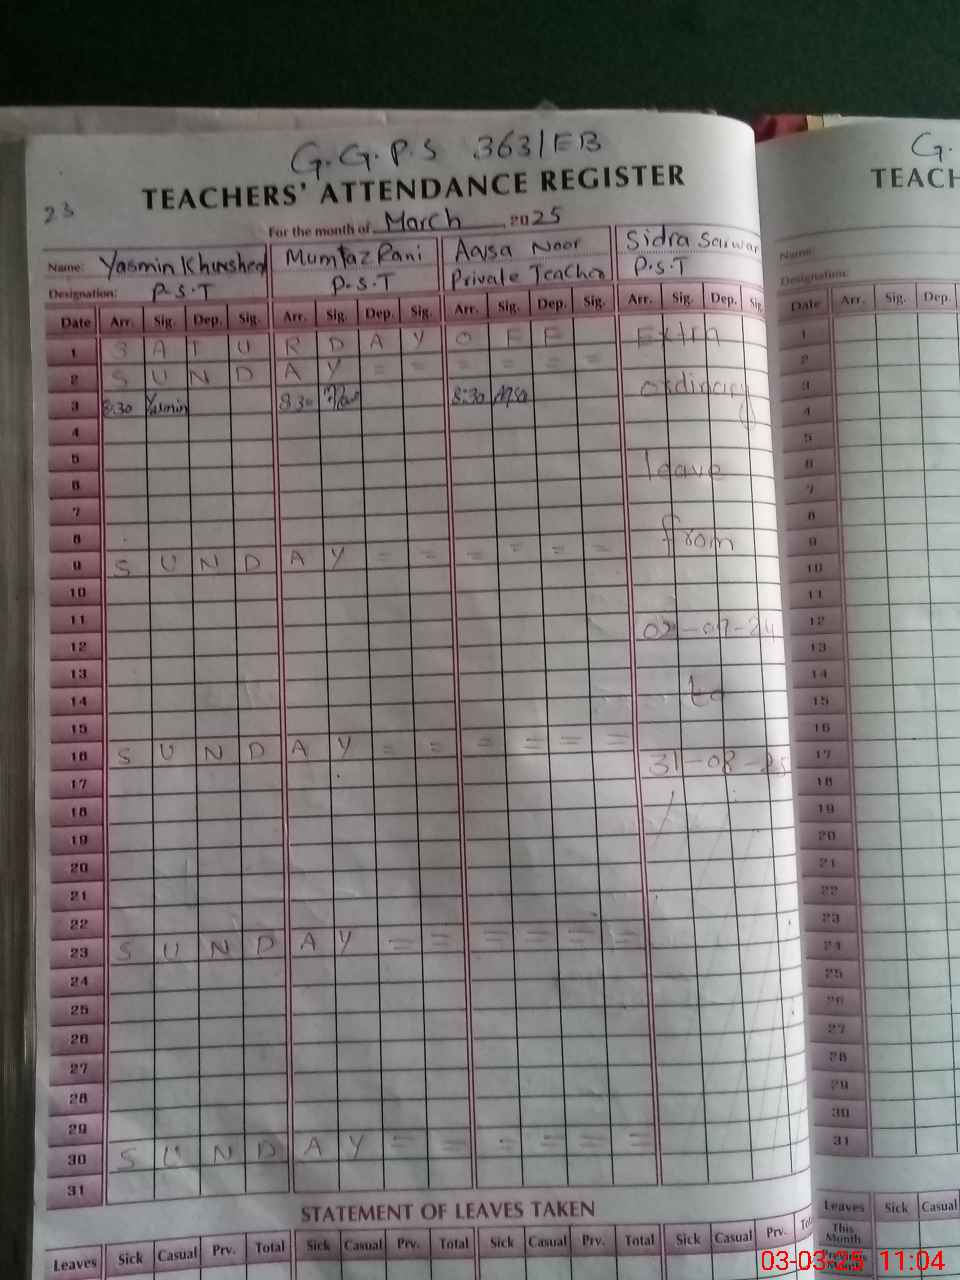 G.G.P.S 363/EB
TEACHERS' ATTENDANCE REGISTER
23
For the month of March 2025
Name: Yasmin Khurshed Mumtaz Rani Aqsa Noor Sidra Sarwar
Designation: P.S.T P.S.T Private Teacher P.S.T
Date Arr. Sig. Dep. Sig. Arr. Sig. Dep. Sig. Arr. Sig. Dep. Sig. Arr. Sig. Dep. Sig.
1 S A T U R D A Y O F F Extra
2 S U N D A Y = = = = = =
3 8:30 Yasmin 8:30 8:30 Aqsa ordinary
4
5
6 leave
7
8 from
9 S U N D A Y = = = = = =
10
11
12
13
14 to
15
16 S U N D A Y = = = = = =
31-08-25
17
18
19
20
21
22
23 S U N D A Y = = = = = =
24
25
26
27
28
29
30 S U N D A Y = = = = = =
31
STATEMENT OF LEAVES TAKEN
Leaves Sick Casual Prv. Total Sick Casual Prv. Total Sick Casual Prv. Total Sick Casual Prv.
G.
TEACH
Name:
Designation:
Date Arr. Sig. Dep.
1
2
3
4
5
6
7
8
9
10
11
12
13
14
15
16
17
18
19
20
21
22
23
24
25
26
27
28
29
30
31
Leaves Sick Casual
This Month
Previous Month
03-03-25 11:04